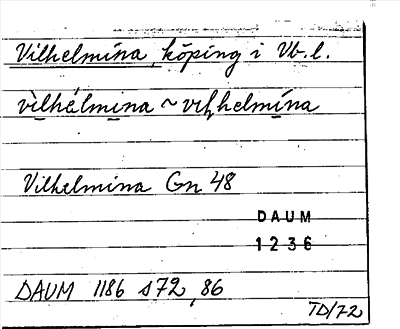 Vilhelmina, köping i Vb. l.
vìlhélmina ~ vilhelmína
Vilhelmina Gn 48
DAUM
1236
DAUM 1186 s 72, 86
TD/72